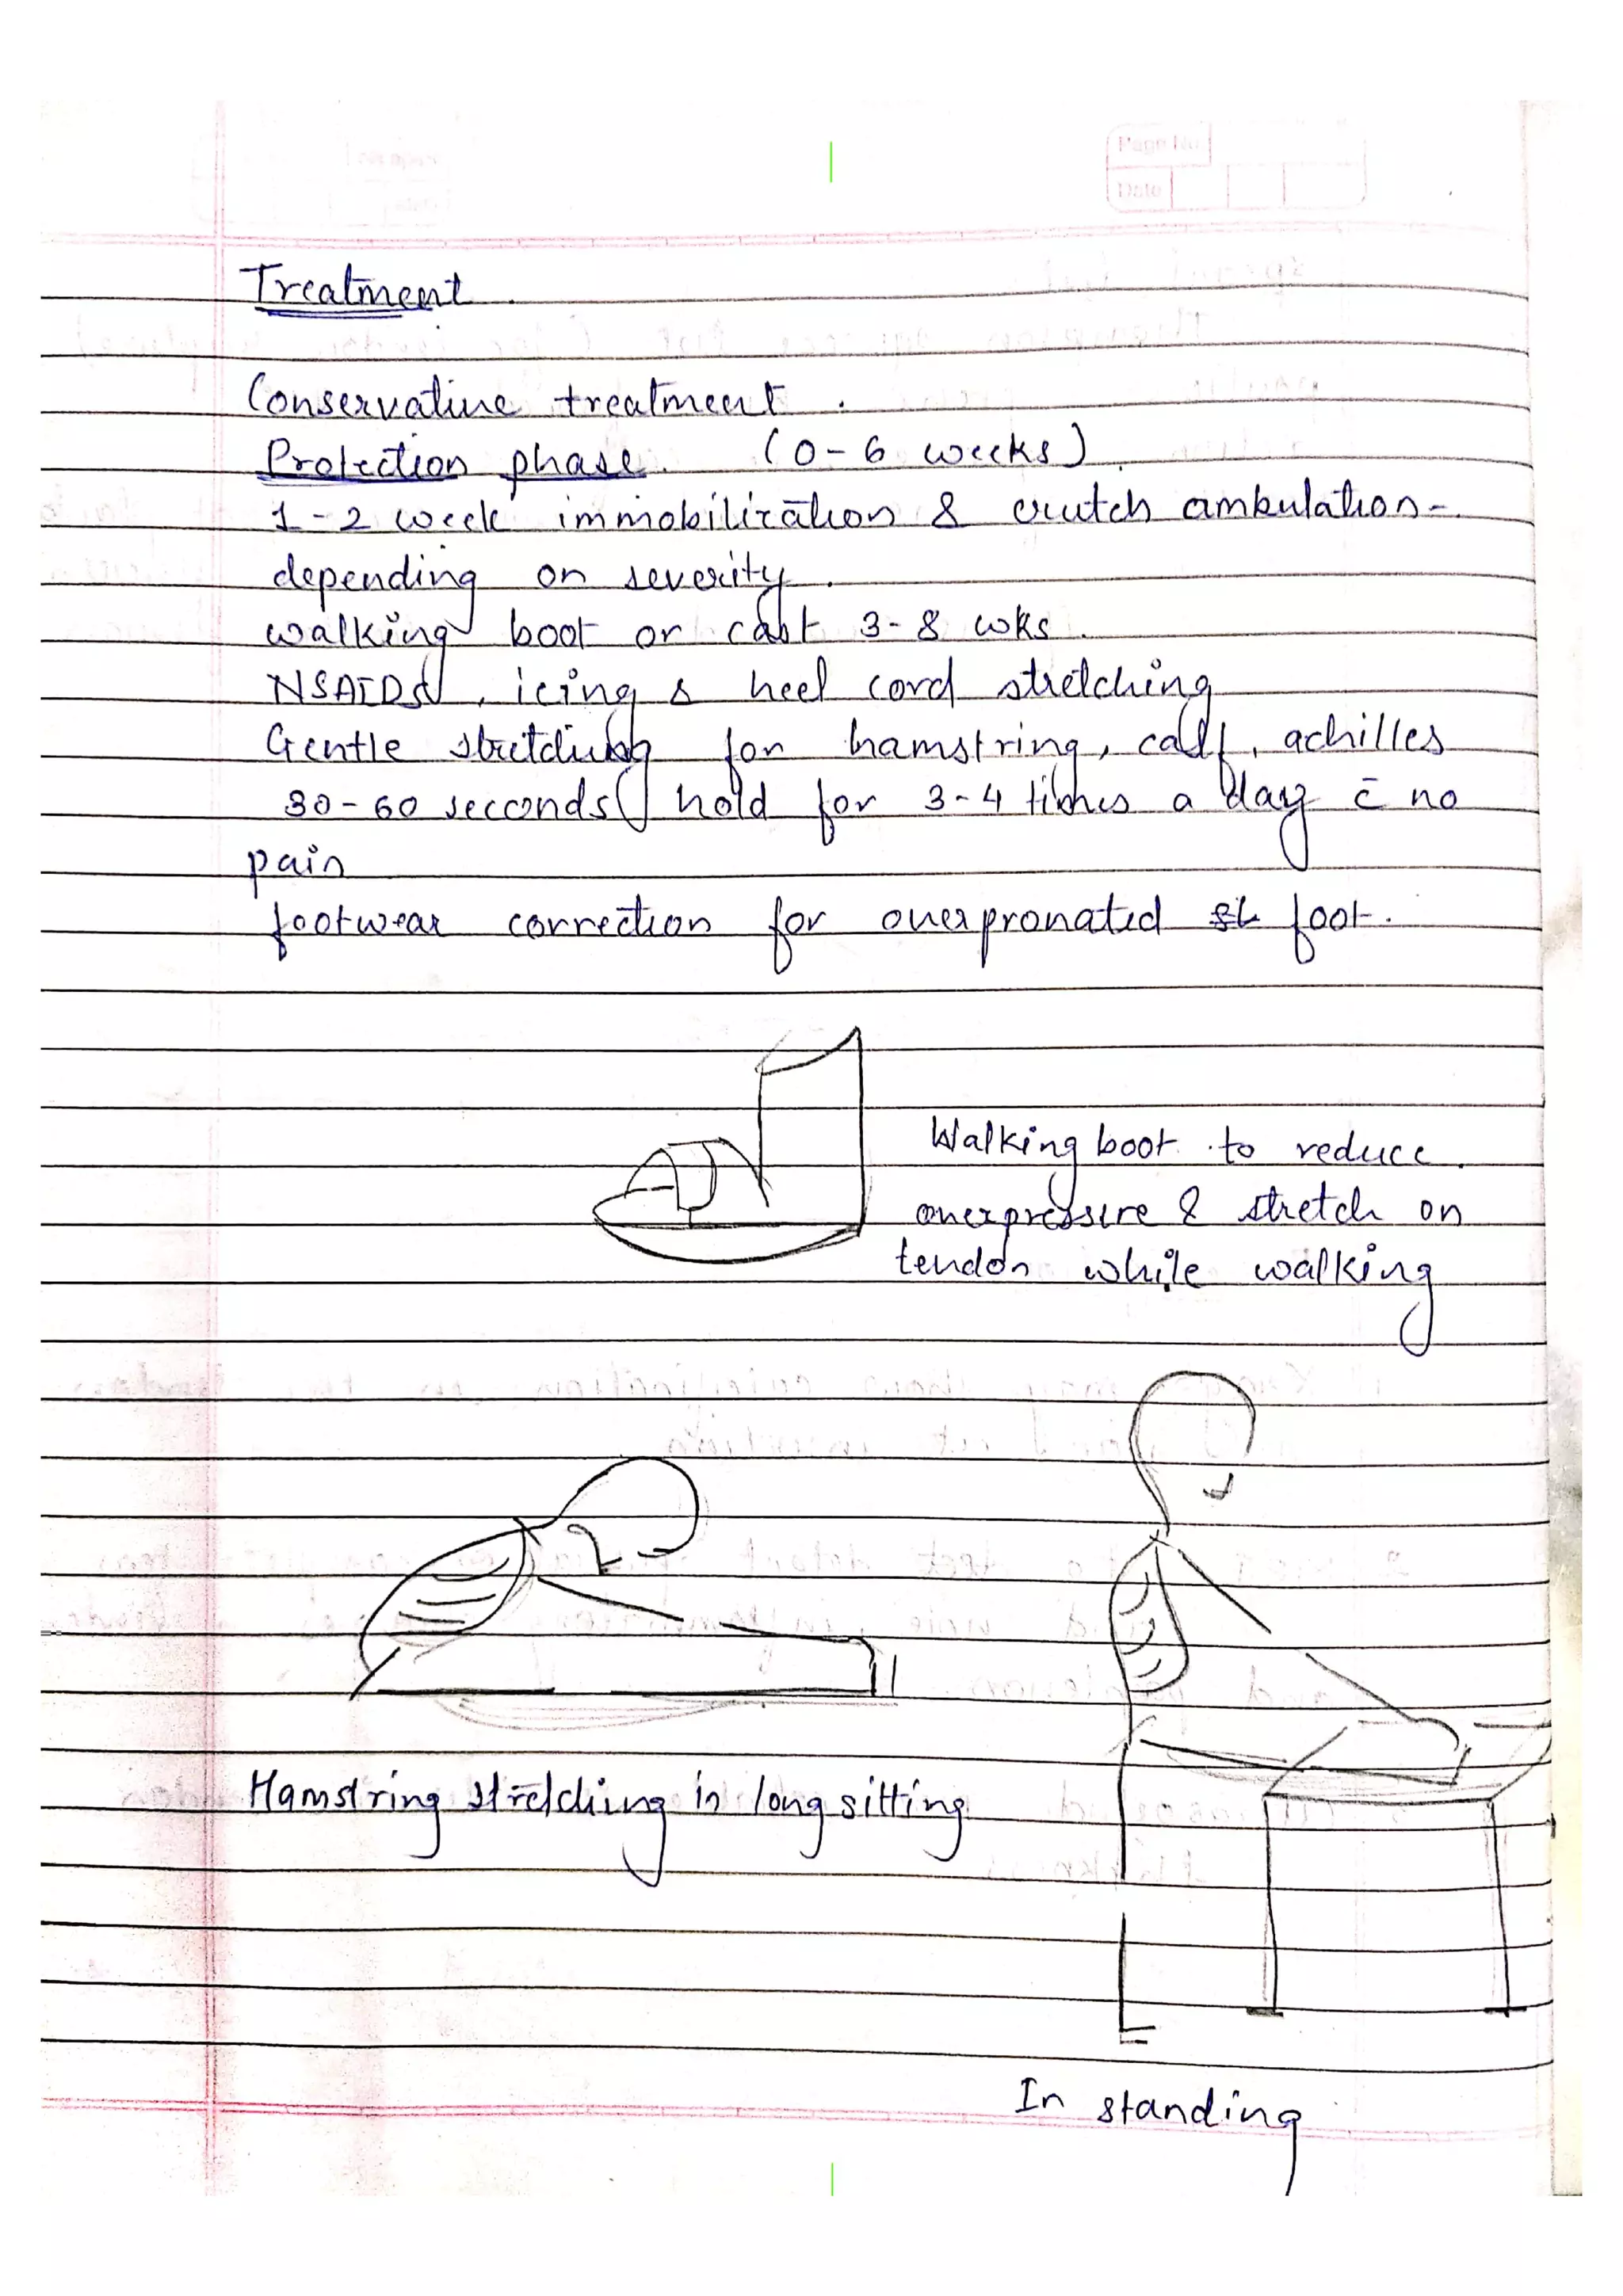 Page No
Date
Treatment.
Conservative treatment.
Protection phase. (0-6 weeks).
1-2 week immobilization & crutch ambulation-
depending on severity.
walking boot or cast 3-8 wks.
NSAIDs, icing & heel cord stretching
Gentle stretching for hamstring, calf, achilles
30-60 secconds hold for 3-4 times a day c̄ no
pain
footwear correction for overpronated foot.
Walking boot to reduce
overpressure & stretch on
tendon while walking
Hamstring stretching in long sitting
In standing